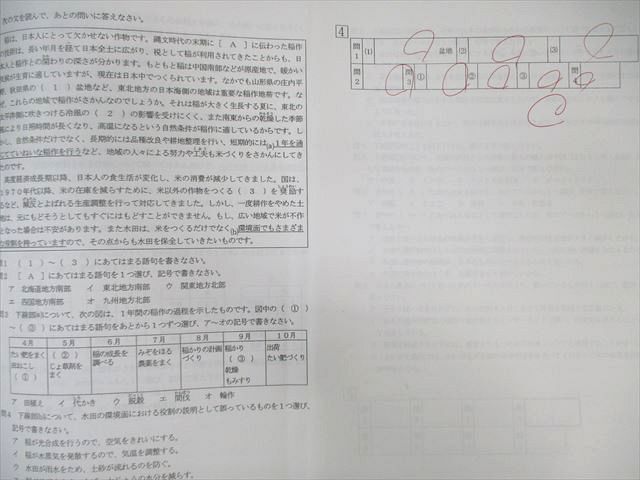 次の文を読んで、あとの問いに答えなさい。
稲は、日本人にとって欠かせない作物です。縄文時代の末期に[ A ]に伝わった稲作
の技術は、長い年月を経て日本全土に広がり、税として稲が利用されてきたことからも、日
本人と稲作との関わりの深さが分かります。もともと稲は中国南部などが原産地で、暖かい
気候が生育に適していますが、現在は日本中でつくられています。なかでも山形県の庄内平
野、秋田県の( 1 )盆地など、東北地方の日本海側の地域は重要な稲作地帯です。な
ぜ、これらの地域で稲作がさかんなのでしょうか。それは稲が大きく生長する夏に、東北の
太平洋側に吹きつける冷風の( 2 )の影響を受けにくく、また南東からの乾燥した季節
風により日照時間が長くなり、高温になるという自然条件が稲作に適しているからです。し
かし、自然条件だけでなく、長期的には品種改良や耕地整理を行い、短期的には(a)1年を通
じてていねいな稲作を行うなど、地域の人々による努力や工夫も米づくりをさかんにしてき
たのです。
高度経済成長期以降、日本人の食生活が変化し、米の消費が減少してきました。国は、
1970年代以降、米の在庫を減らすために、米以外の作物をつくる( 3 )を奨励す
るなど、減反とよばれる生産調整を行って対応してきました。しかし、一度耕作をやめた土
地は、元にもどそうとしてもすぐにはもどすことができません。もし、広い地域で米が不作
となった場合は不安があります。また水田は、米をつくるだけでなく(b)環境面でもさまざま
な役割を持っていますので、その点からも水田を保全していきたいものです。
問1 ( 1 )~( 3 )にあてはまる語句を書きなさい。
問2 [ A ]にあてはまる語句を1つ選び、記号で書きなさい。
ア 北海道地方南部 イ 東北地方南部 ウ 関東地方北部
エ 四国地方南部 オ 九州地方北部
問3 下線部(a)について、次の図は、1年間の稲作の過程を示したものです。図中の( ① )
~( ③ )にあてはまる語句をあとから1つずつ選び、ア~オの記号で書きなさい。
4月 5月 6月 7月 8月 9月 10月
たい肥をまく
田おこし
( ① )
( ② )
じょ草剤を
まく
稲の成長を
調べる
みぞをほる
農薬をまく
稲かりの計画
づくり
稲かり
( ③ )
乾燥
もみすり
出荷
たい肥づくり
ア 田植え イ 代かき ウ 脱穀 エ 間伐 オ 輪作
問4 下線部(b)について、水田の環境面における役割の説明として誤っているものを1つ選び、
記号で書きなさい。
ア 稲が光合成を行うので、空気をきれいにする。
イ 稲が水蒸気を発散するので、気温を調整する。
ウ 水田が雨水をため、土砂が流れるのを防ぐ。
4
問1 (1) 盆地 (2) (3)
問2 問3 ① ② ③ 問4